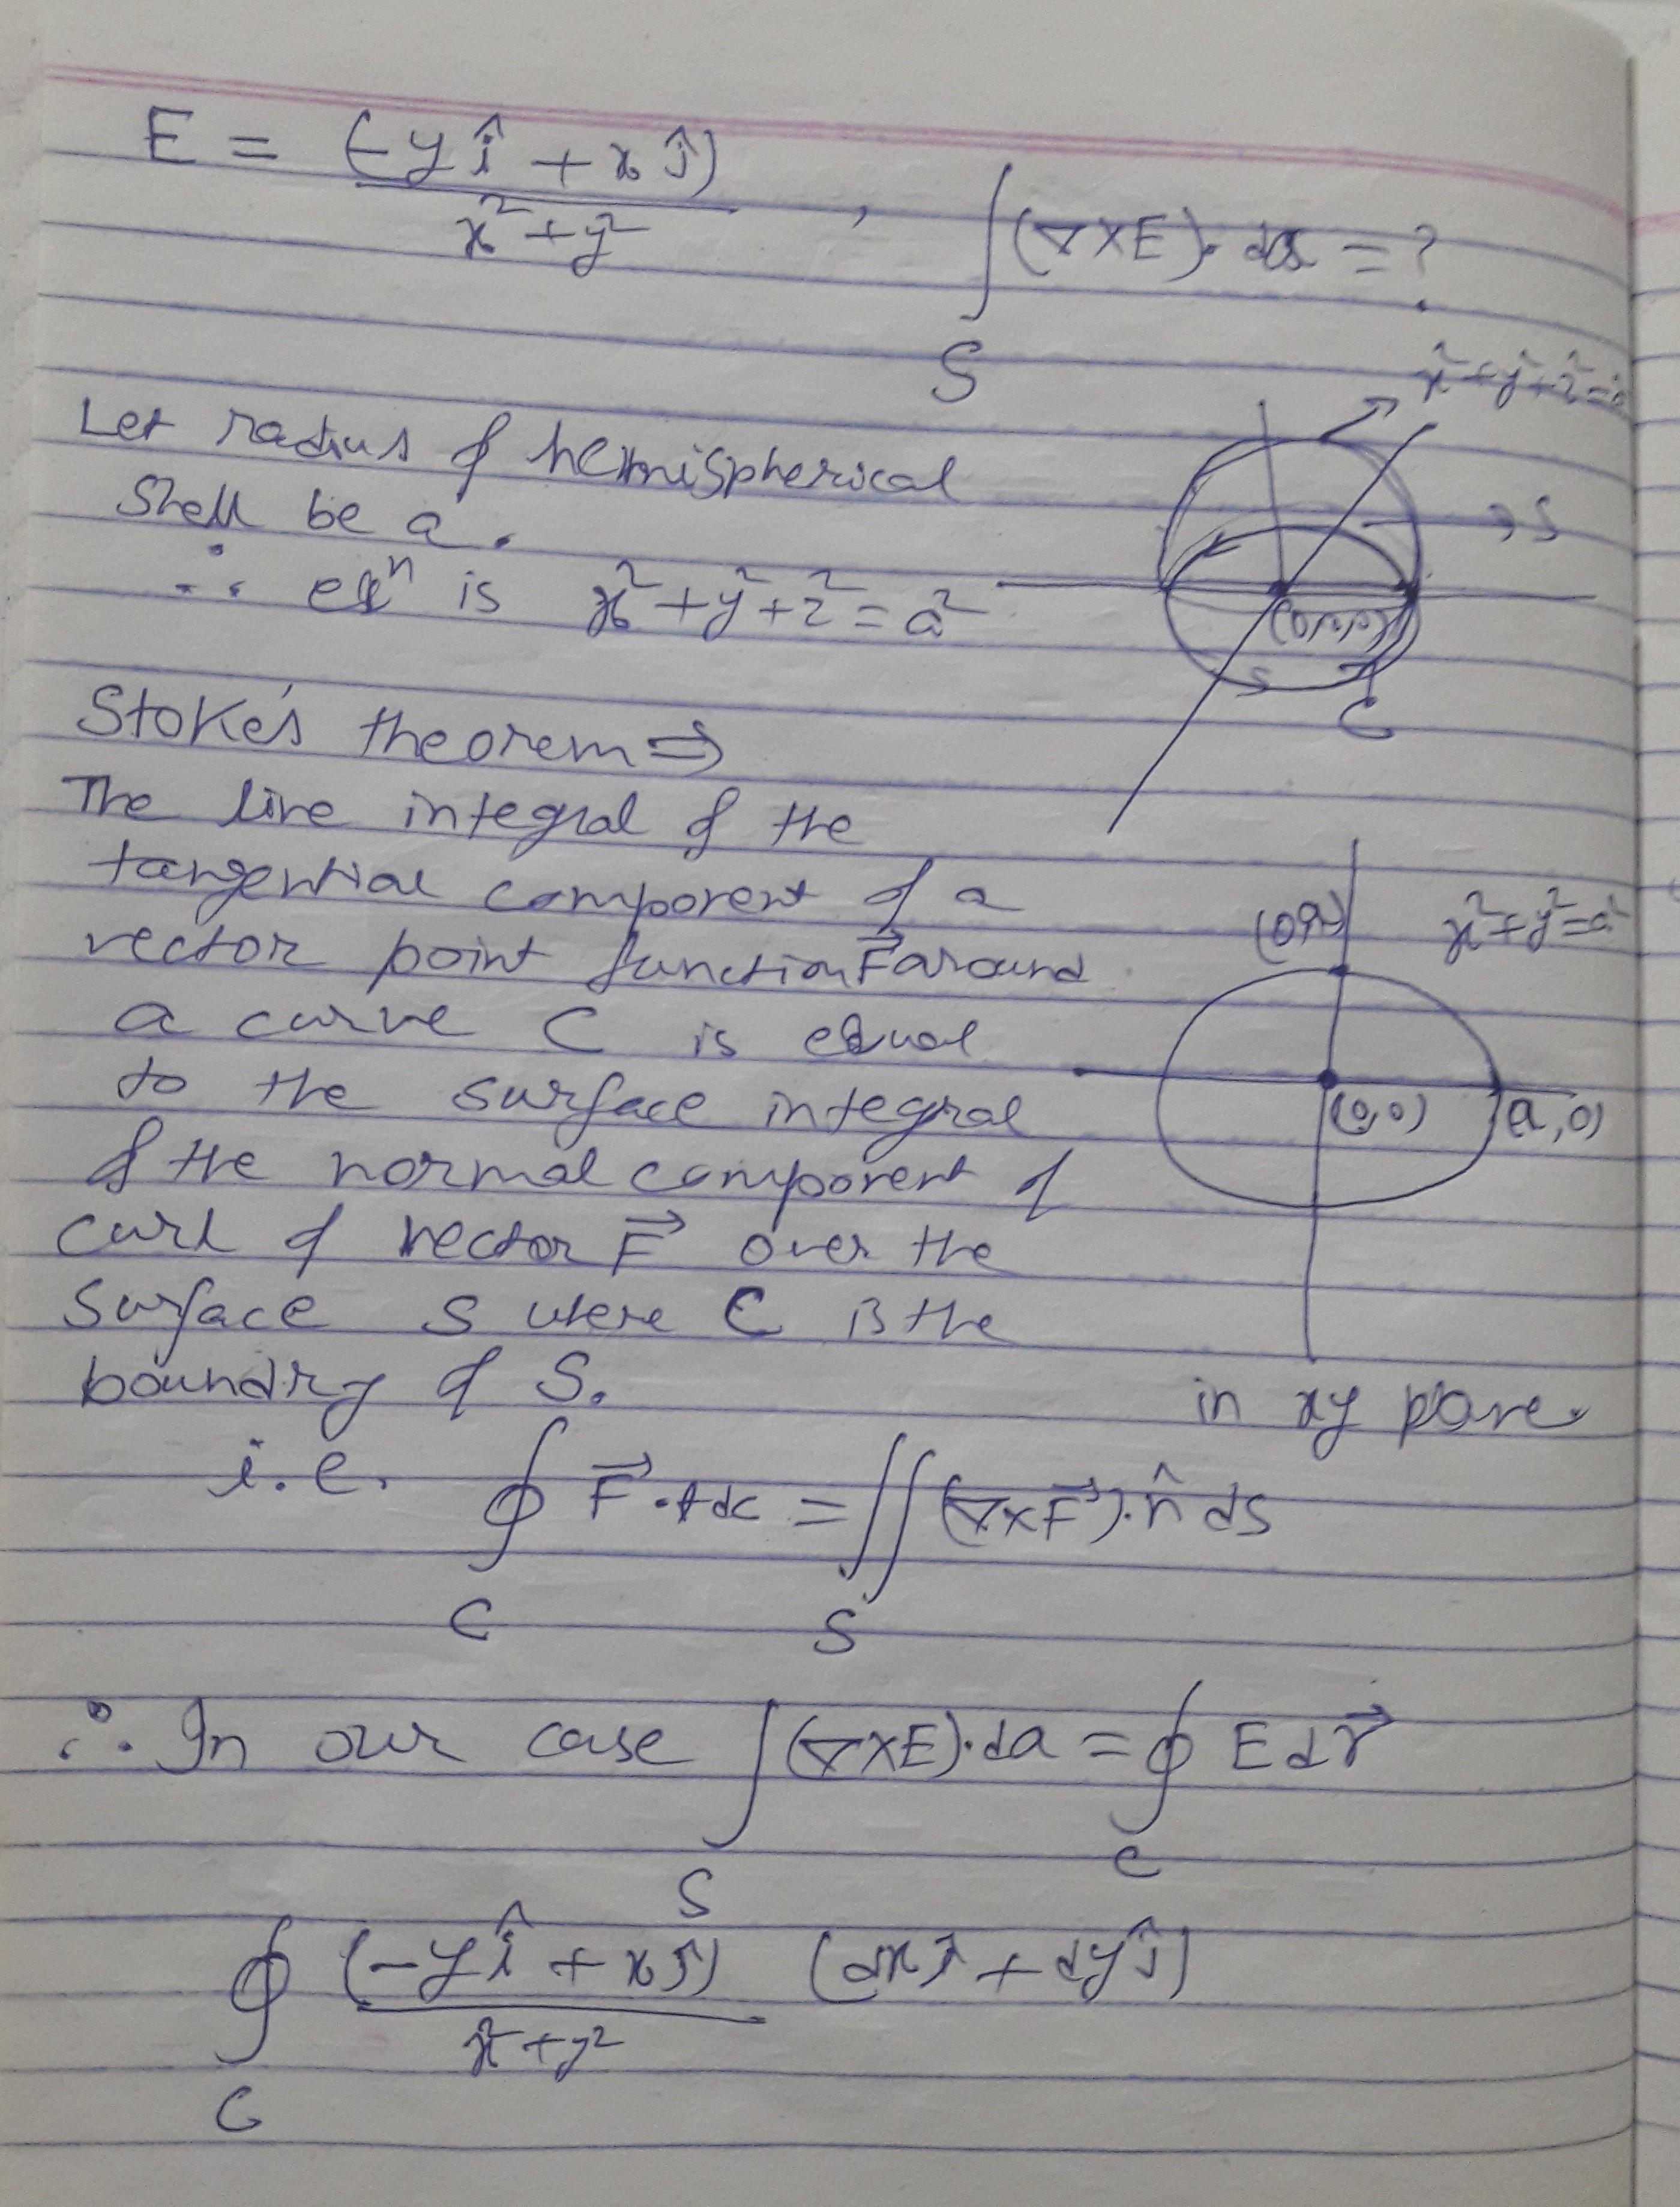 E = (-y î + x ĵ) / x² + y² , ∫ (∇×E)· da = ?
S
x² + y² + z² = a²
Let radius of hemispherical
Shell be a.
∴ eqⁿ is x² + y² + z² = a²
→ S
(0,0,0)
S
C
Stoke's theorem ⇒
The line integral of the
tangential component of a
vector point function F⃗ around
a curve C is equal
to the surface integral
of the normal component of
curl of vector F⃗ over the
surface S where C is the
boundry of S.
(0,a) x² + y² = a²
(0,0) (a,0)
in xy plane.
i.e. ∮ F⃗ · t dc = ∬ (∇×F⃗)· n̂ ds
C S
∴ In our case ∫ (∇×E)·da = ∮ E dr⃗
S C
∮ (-y î + x ĵ) / x² + y² (dx î + dy ĵ)
C